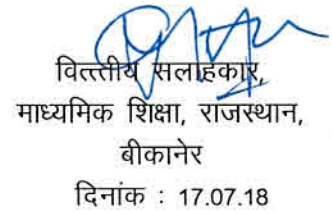 वित्तीय सलाहकार,
माध्यमिक शिक्षा, राजस्थान,
बीकानेर
दिनांक : 17.07.18